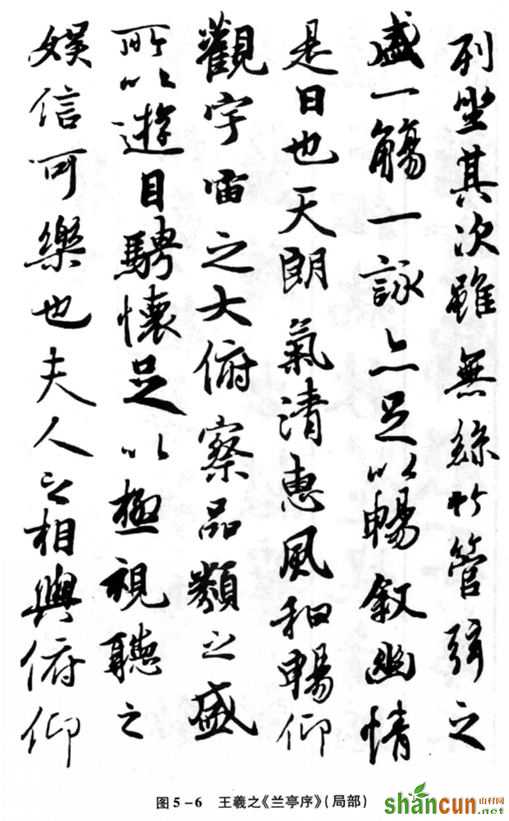 列坐其次雖無絲竹管弦之
盛一觴一詠亦足以暢叙幽情
是日也天朗氣清惠風和暢仰
觀宇宙之大俯察品類之盛
所以遊目騁懷足以極視聽之
娛信可樂也夫人之相與俯仰
图5-6 王羲之《兰亭序》(局部)
shancun 山村网
.net